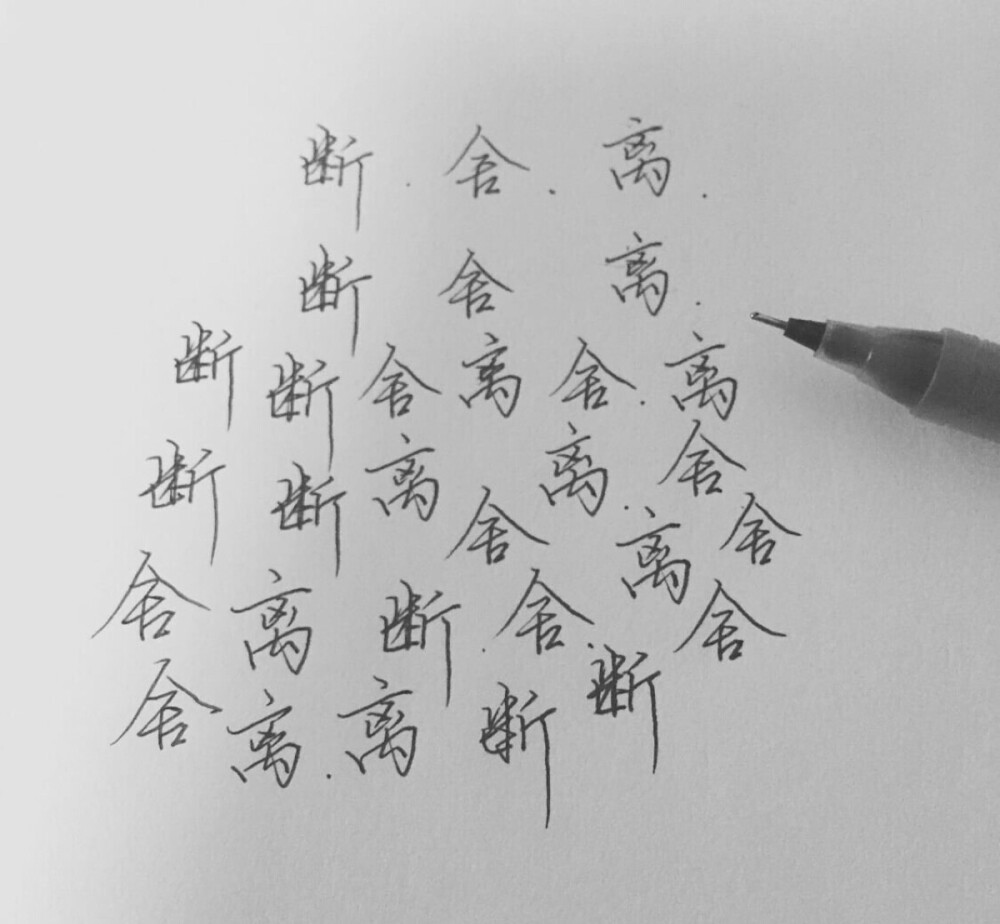 断.舍.离.
断 舍 离.
断 断 舍 离 舍.离
断 断 离 舍 离.舍
舍 离 断.舍.离 舍 舍
舍 离.离 断 断